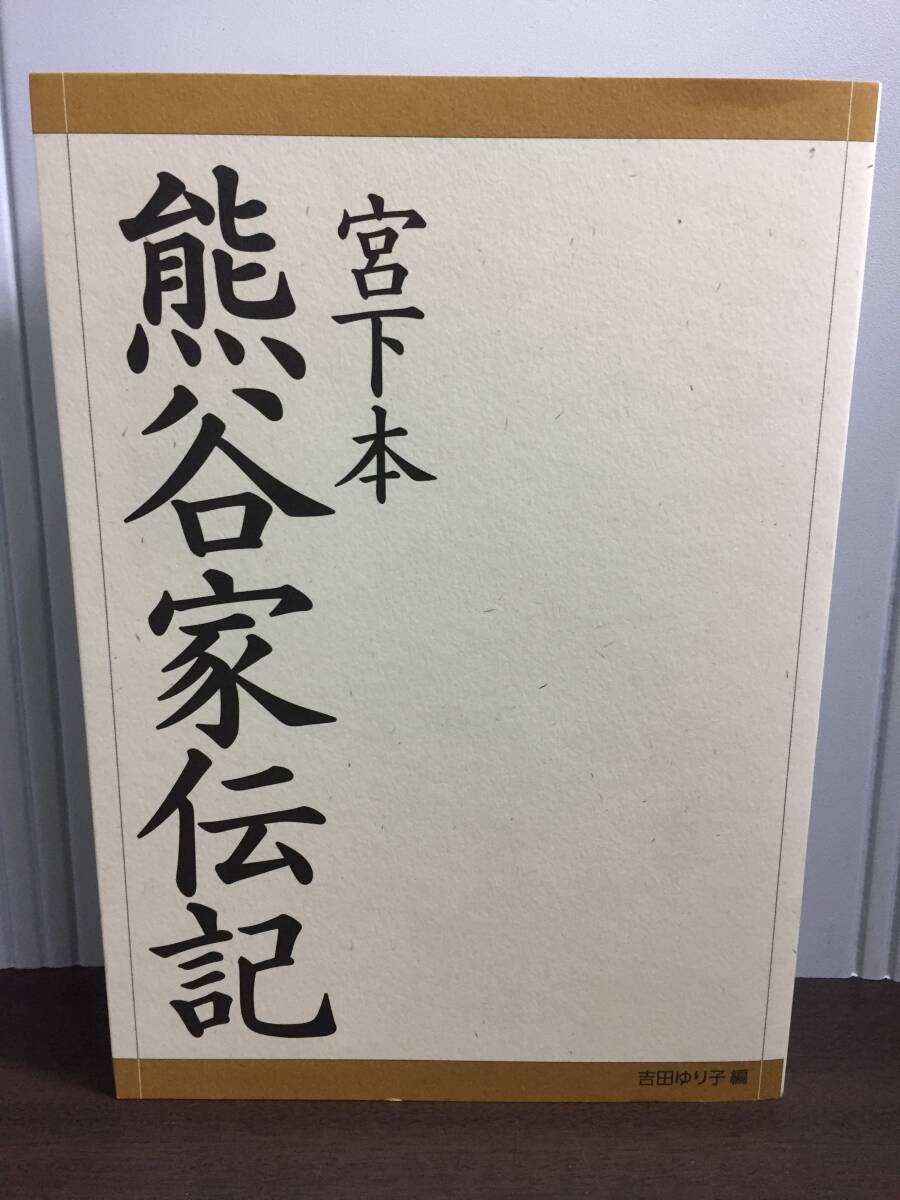 宮下本
熊谷家伝記
吉田ゆり子 編